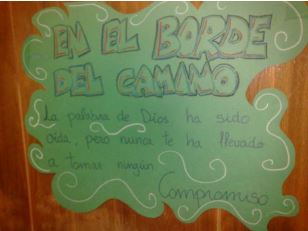 EN EL BORDE
DEL CAMINO
La palabra de Dios ha sido
oída, pero nunca te ha llevado
a tomar ningún
Compromiso